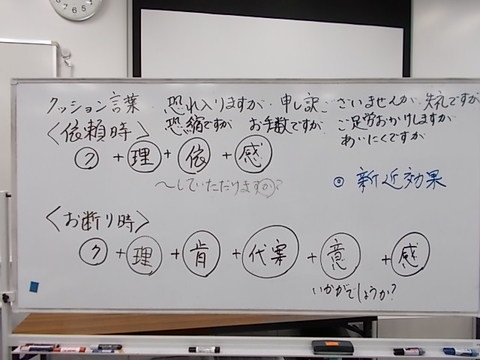 クッション言葉 恐れ入りますが 申し訳ございませんが 失礼ですが
〈依頼時〉 恐縮ですが お手数ですが ご足労おかけしますが
あいにくですが
ク + 理 + 依 + 感
〜していただけますか?
◎ 新近効果
〈お断り時〉
ク + 理 + 肯 + 代案 + 意 + 感
いかがでしょうか?